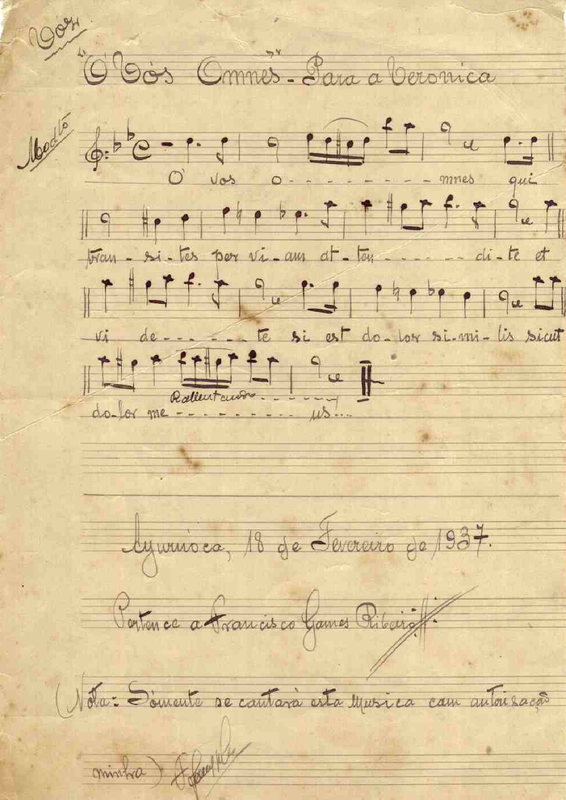 Voz
"O Vós Omnes" - Para a Veronica
Modto
O vos o - - - - - - - - mnes qui
tran - si - tes per vi - am at - ten - - - - - - di - te et
vi de - - - - - - te si est do - lor si - mi - lis sicut
Rallentando - - - - - -
do - lor me - - - - - - - - us...
Ayuruoca, 18 de Fevereiro de 1937.
Pertence a Francisco Gomes Ribeiro
(Nota: Sómente se cantará esta musica com autorisação
minha)